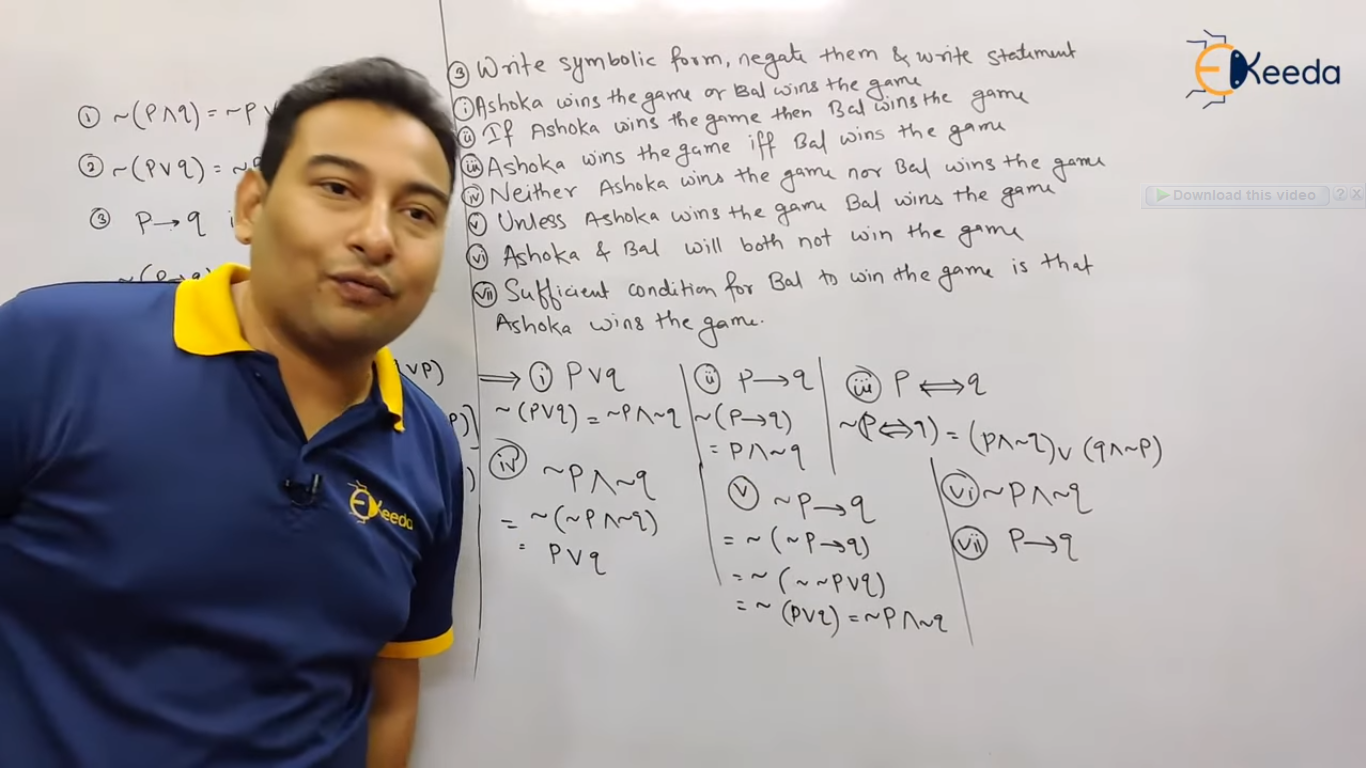 ① ~(P∧q) = ~P ∨
② ~(P∨q) = ~q
③ P→q
~(P→q)
∨P)
P)]
)]
③ Write symbolic form, negate them & write statement
ⓘ Ashoka wins the game or Bal wins the game
ⓘⓘ If Ashoka wins the game then Bal wins the game
ⓘⓘⓘ Ashoka wins the game iff Bal wins the game
ⓘⓥ Neither Ashoka wins the game nor Bal wins the game
ⓥ Unless Ashoka wins the game Bal wins the game
ⓥⓘ Ashoka & Bal will both not win the game
ⓥⓘⓘ Sufficient condition for Bal to win the game is that
Ashoka wins the game.
⟹ ⓘ P∨q
~(P∨q) = ~P∧~q
ⓘⓘ P→q
~(P→q)
= P∧~q
ⓘⓘⓘ P⟺q
~(P⟺q) = (P∧~q)∨(q∧~P)
ⓘⓥ ~P∧~q
= ~(~P∧~q)
= P∨q
ⓥ ~P→q
= ~(~P→q)
= ~(~~P∨q)
= ~(P∨q) = ~P∧~q
ⓥⓘ ~P∧~q
ⓥⓘⓘ P→q
EKeeda
EKeeda
Download this video ? X